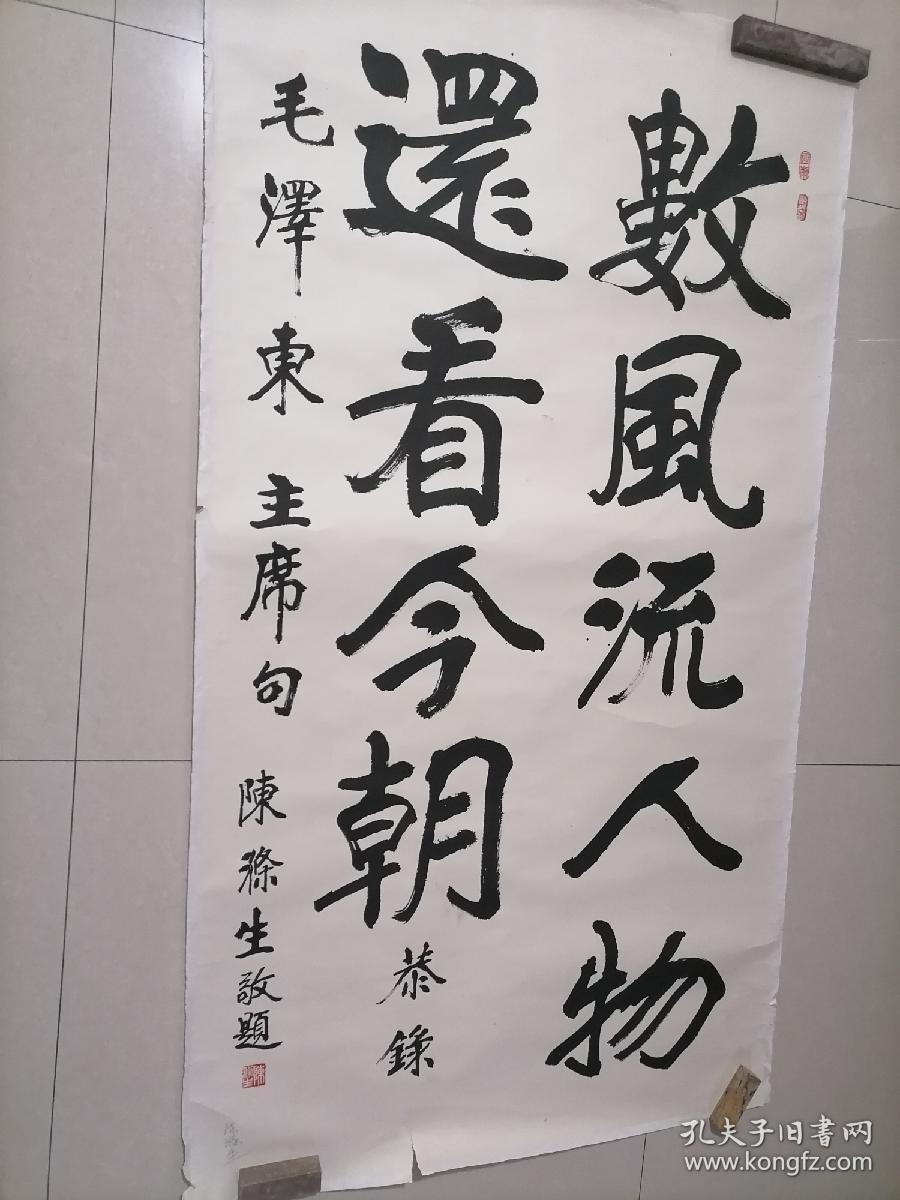 數風流人物
還看今朝
恭錄
毛澤東主席句
陳滌生敬題
孔夫子旧书网
www.kongfz.com